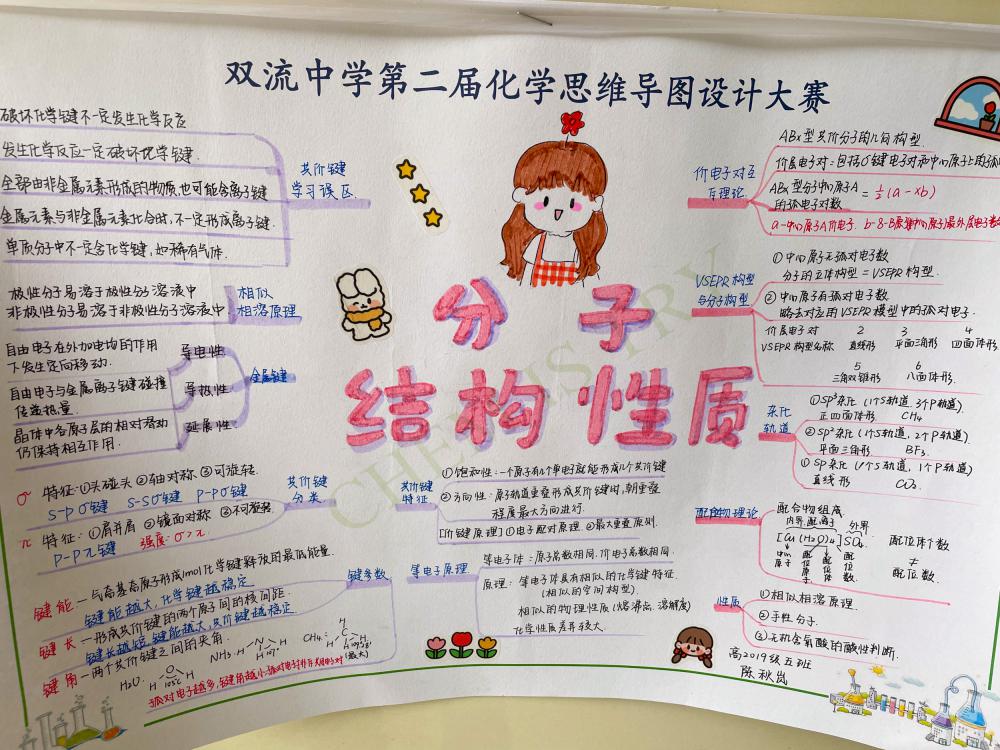 双流中学第二届化学思维导图设计大赛
CHEMISTRY
分子
结构性质
破坏化学键不一定发生化学反应
发生化学反应一定破坏化学键.
全部由非金属元素形成的物质也可能含离子键
金属元素与非金属元素化合时,不一定形成离子键.
单质分子中不一定含化学键,如稀有气体.
共价键
学习误区
极性分子易溶于极性分子溶液中
非极性分子易溶于非极性分子溶液中.
相似
相溶原理
自由电子在外加电场的作用
下发生定向移动.
导电性
自由电子与金属离子键碰撞
传递热量.
导热性
晶体中各原子层的相对滑动
仍保持相互作用.
延展性
金属键
σ 特征:①头碰头 ②轴对称 ③可旋转.
s-p σ键 s-s σ键 p-p σ键
π 特征:①肩并肩 ②镜面对称 ③不可旋转
p-p π键 强度:σ>π
共价键
分类
键能—气态基态原子形成1mol化学键释放的最低能量.
键能越大,化学键越稳定
键长—形成共价键的两个原子间的核间距.
键长越短,键能越大,共价键越稳定.
键角—两个共价键之间的夹角.
键参数
H₂O. H O H 105°
NH₃. H N H 107° H
CH₄. H C H H H
(最大)
价电子对互
斥理论.
ABx型共价分子的几何构型.
价层电子对:包括σ键电子对和中心原子上的孤
ABx型分子中心原子A
的孤电子对数 = ½(a-xb)
VSEPR构型
与分子构型
①中心原子无孤对电子数
分子的立体构型=VSEPR构型.
②中心原子有孤对电子数
略去对应的VSEPR模型中的孤对电子.
价层电子对 2 3 4
VSEPR构型名称 直线形 平面三角形 四面体形
5 6
三角双锥形 八面体形.
杂化
轨道
①sp³杂化(1个s轨道,3个p轨道).
正四面体形 CH₄
②sp²杂化(1个s轨道,2个p轨道).
平面三角形 BF₃
①sp杂化(1个s轨道,1个p轨道)
直线形 CO₂.
共价键
特征
①饱和性:一个原子有几个单电就能形成几个共价键
②方向性:原子轨道重叠形成共价键时,朝重叠
程度最大方向进行.
[价键原理]①电子配对原理 ②最大重叠原则.
等电子原理
等电子体:原子总数相同.价电子总数相同.
原理:等电子体具有相似的化学键特征.
(相似的空间构型)
相似的物理性质(熔沸点,溶解度)
化学性质差异较大.
配合物理论
配合物组成.
内界.配离子 外界.
[Cu(H₂O)₄]SO₄
中心原子 配位原子 配位体 配位数.
配位体个数
≠
配位数.
性质
①相似相溶原理.
②手性分子.
③无机含氧酸的酸性判断.
高2019级五班
陈秋岚